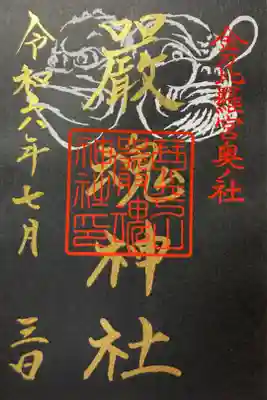 金刀比羅宮奥ノ社
嚴魂神社
令和六年七月 三日